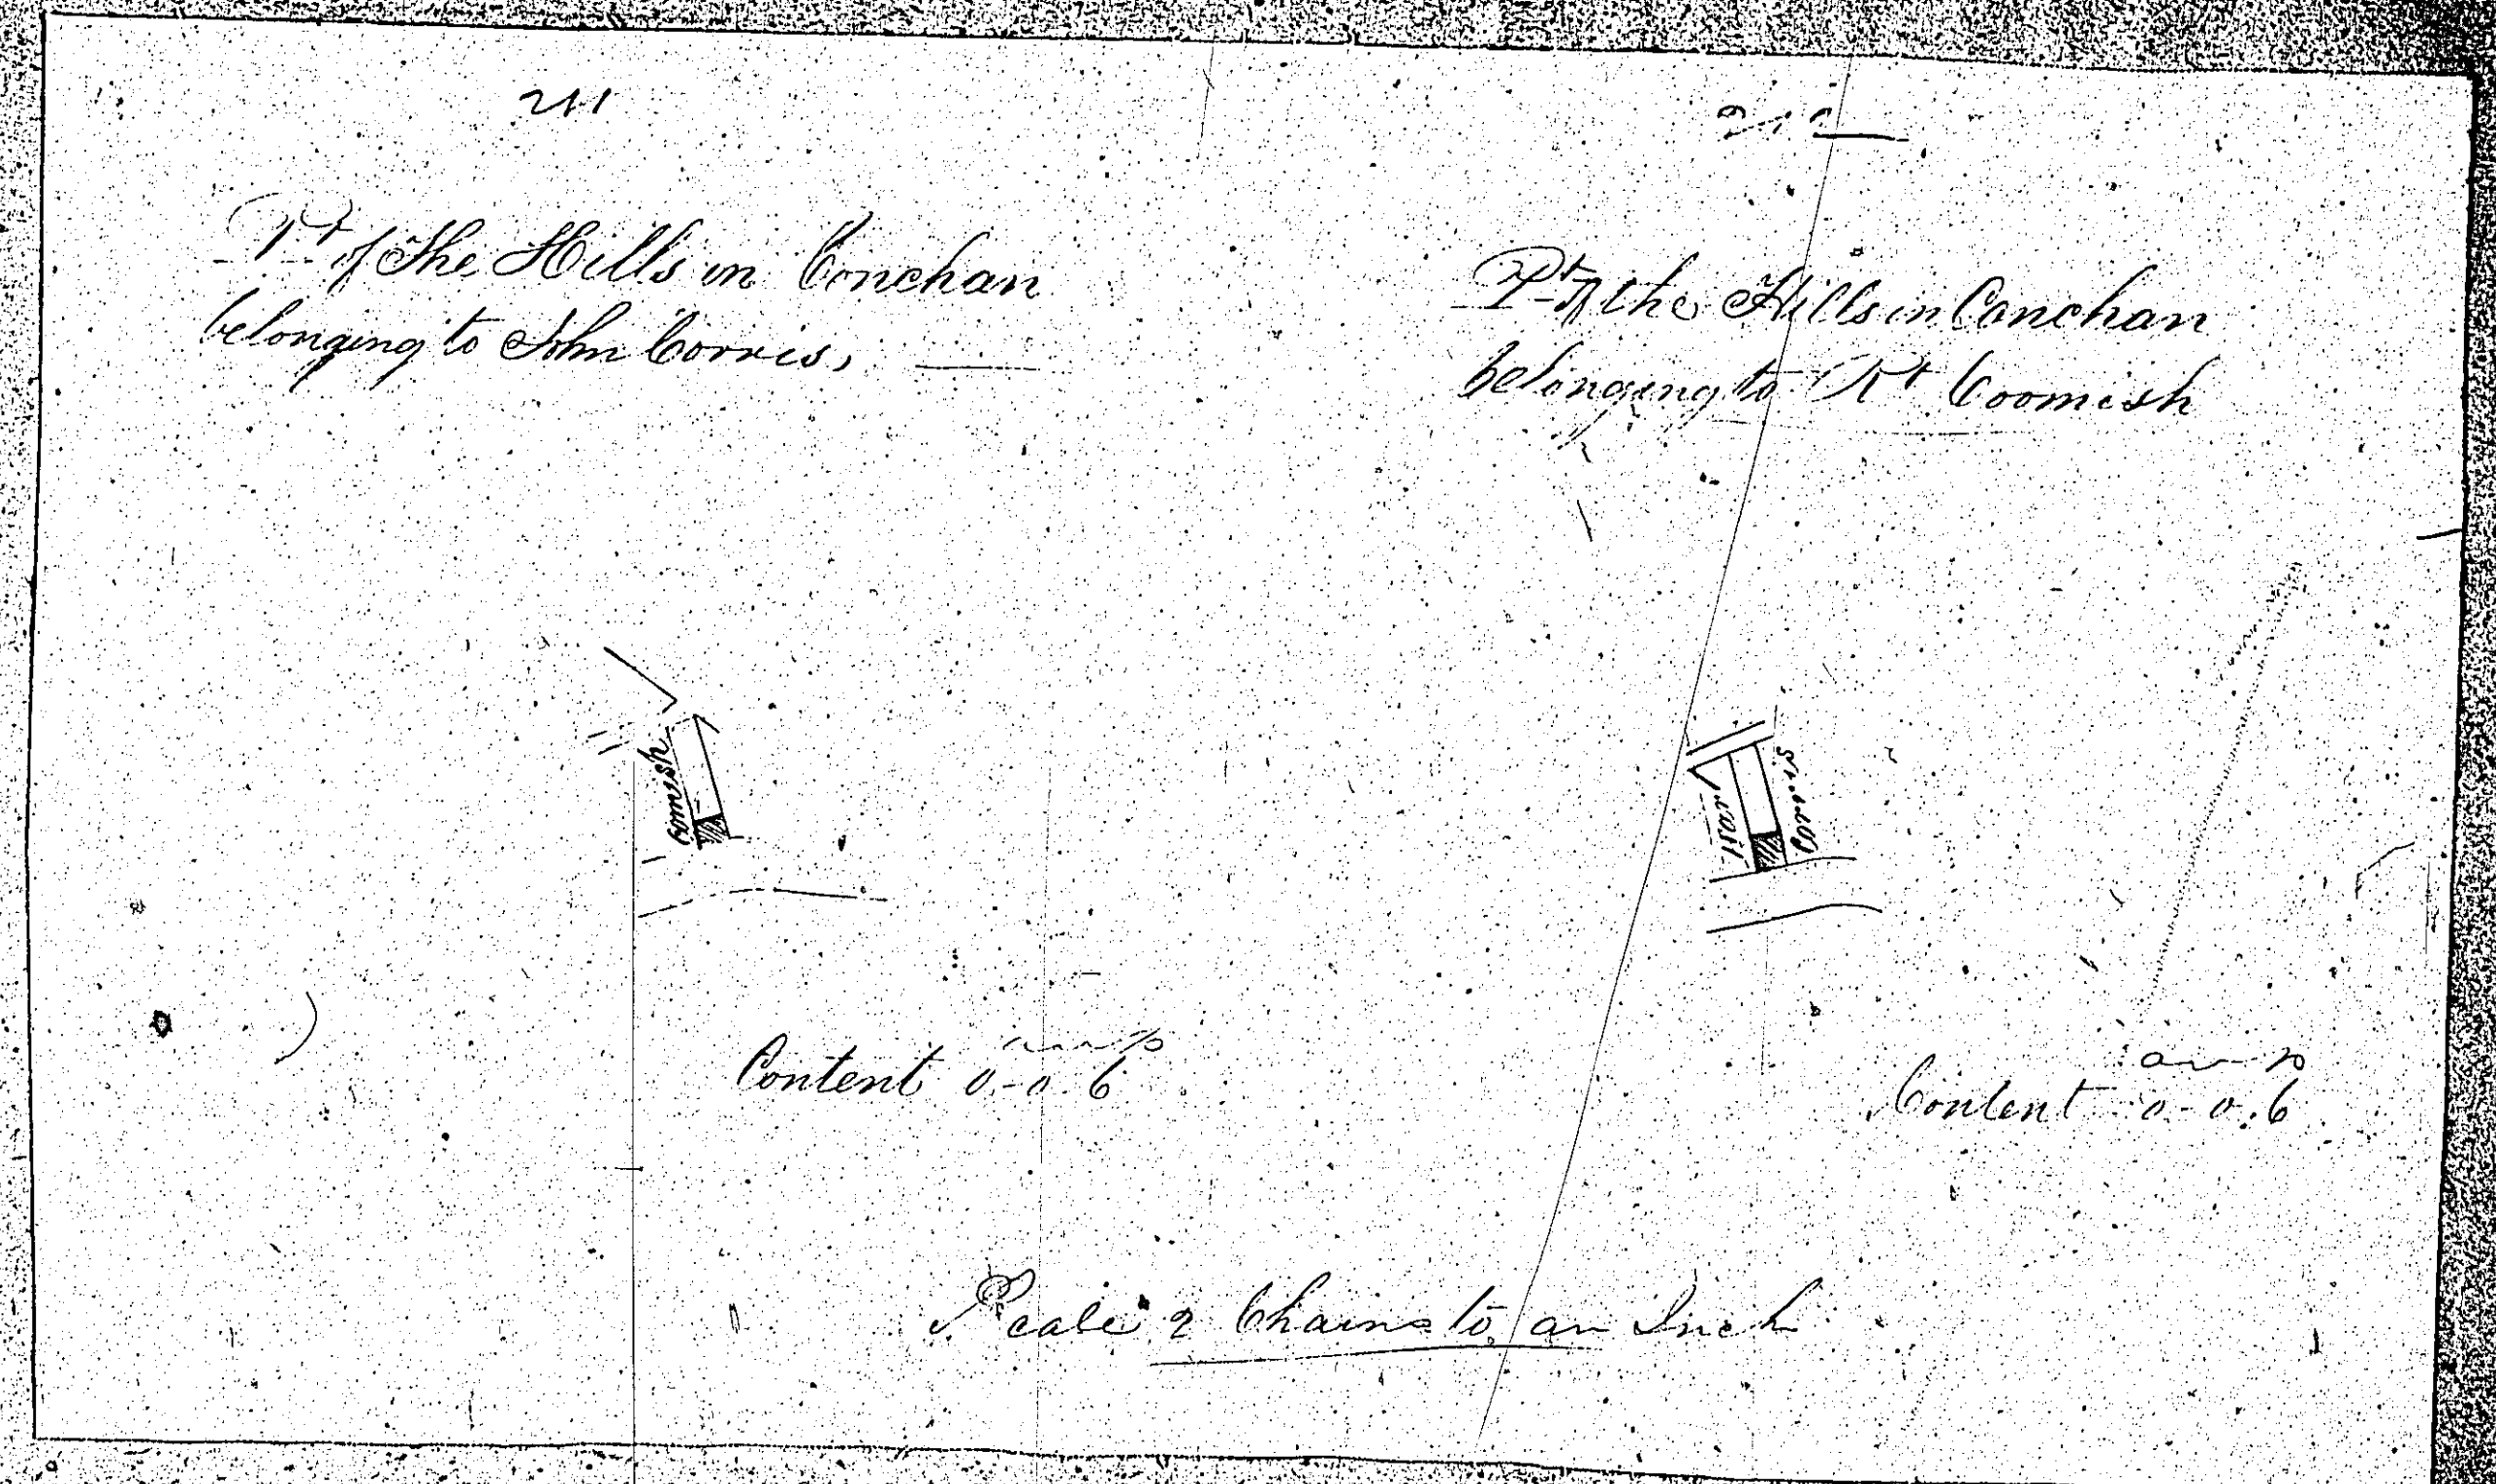 211
Pt of The Hills in Conchan
belonging to John Corris,
Content 0-0.6
Pt of the Hills in Conchan
belonging to Rt Coomish
Corris
Content 0-0.6
Scale 2 Chains to an Inch